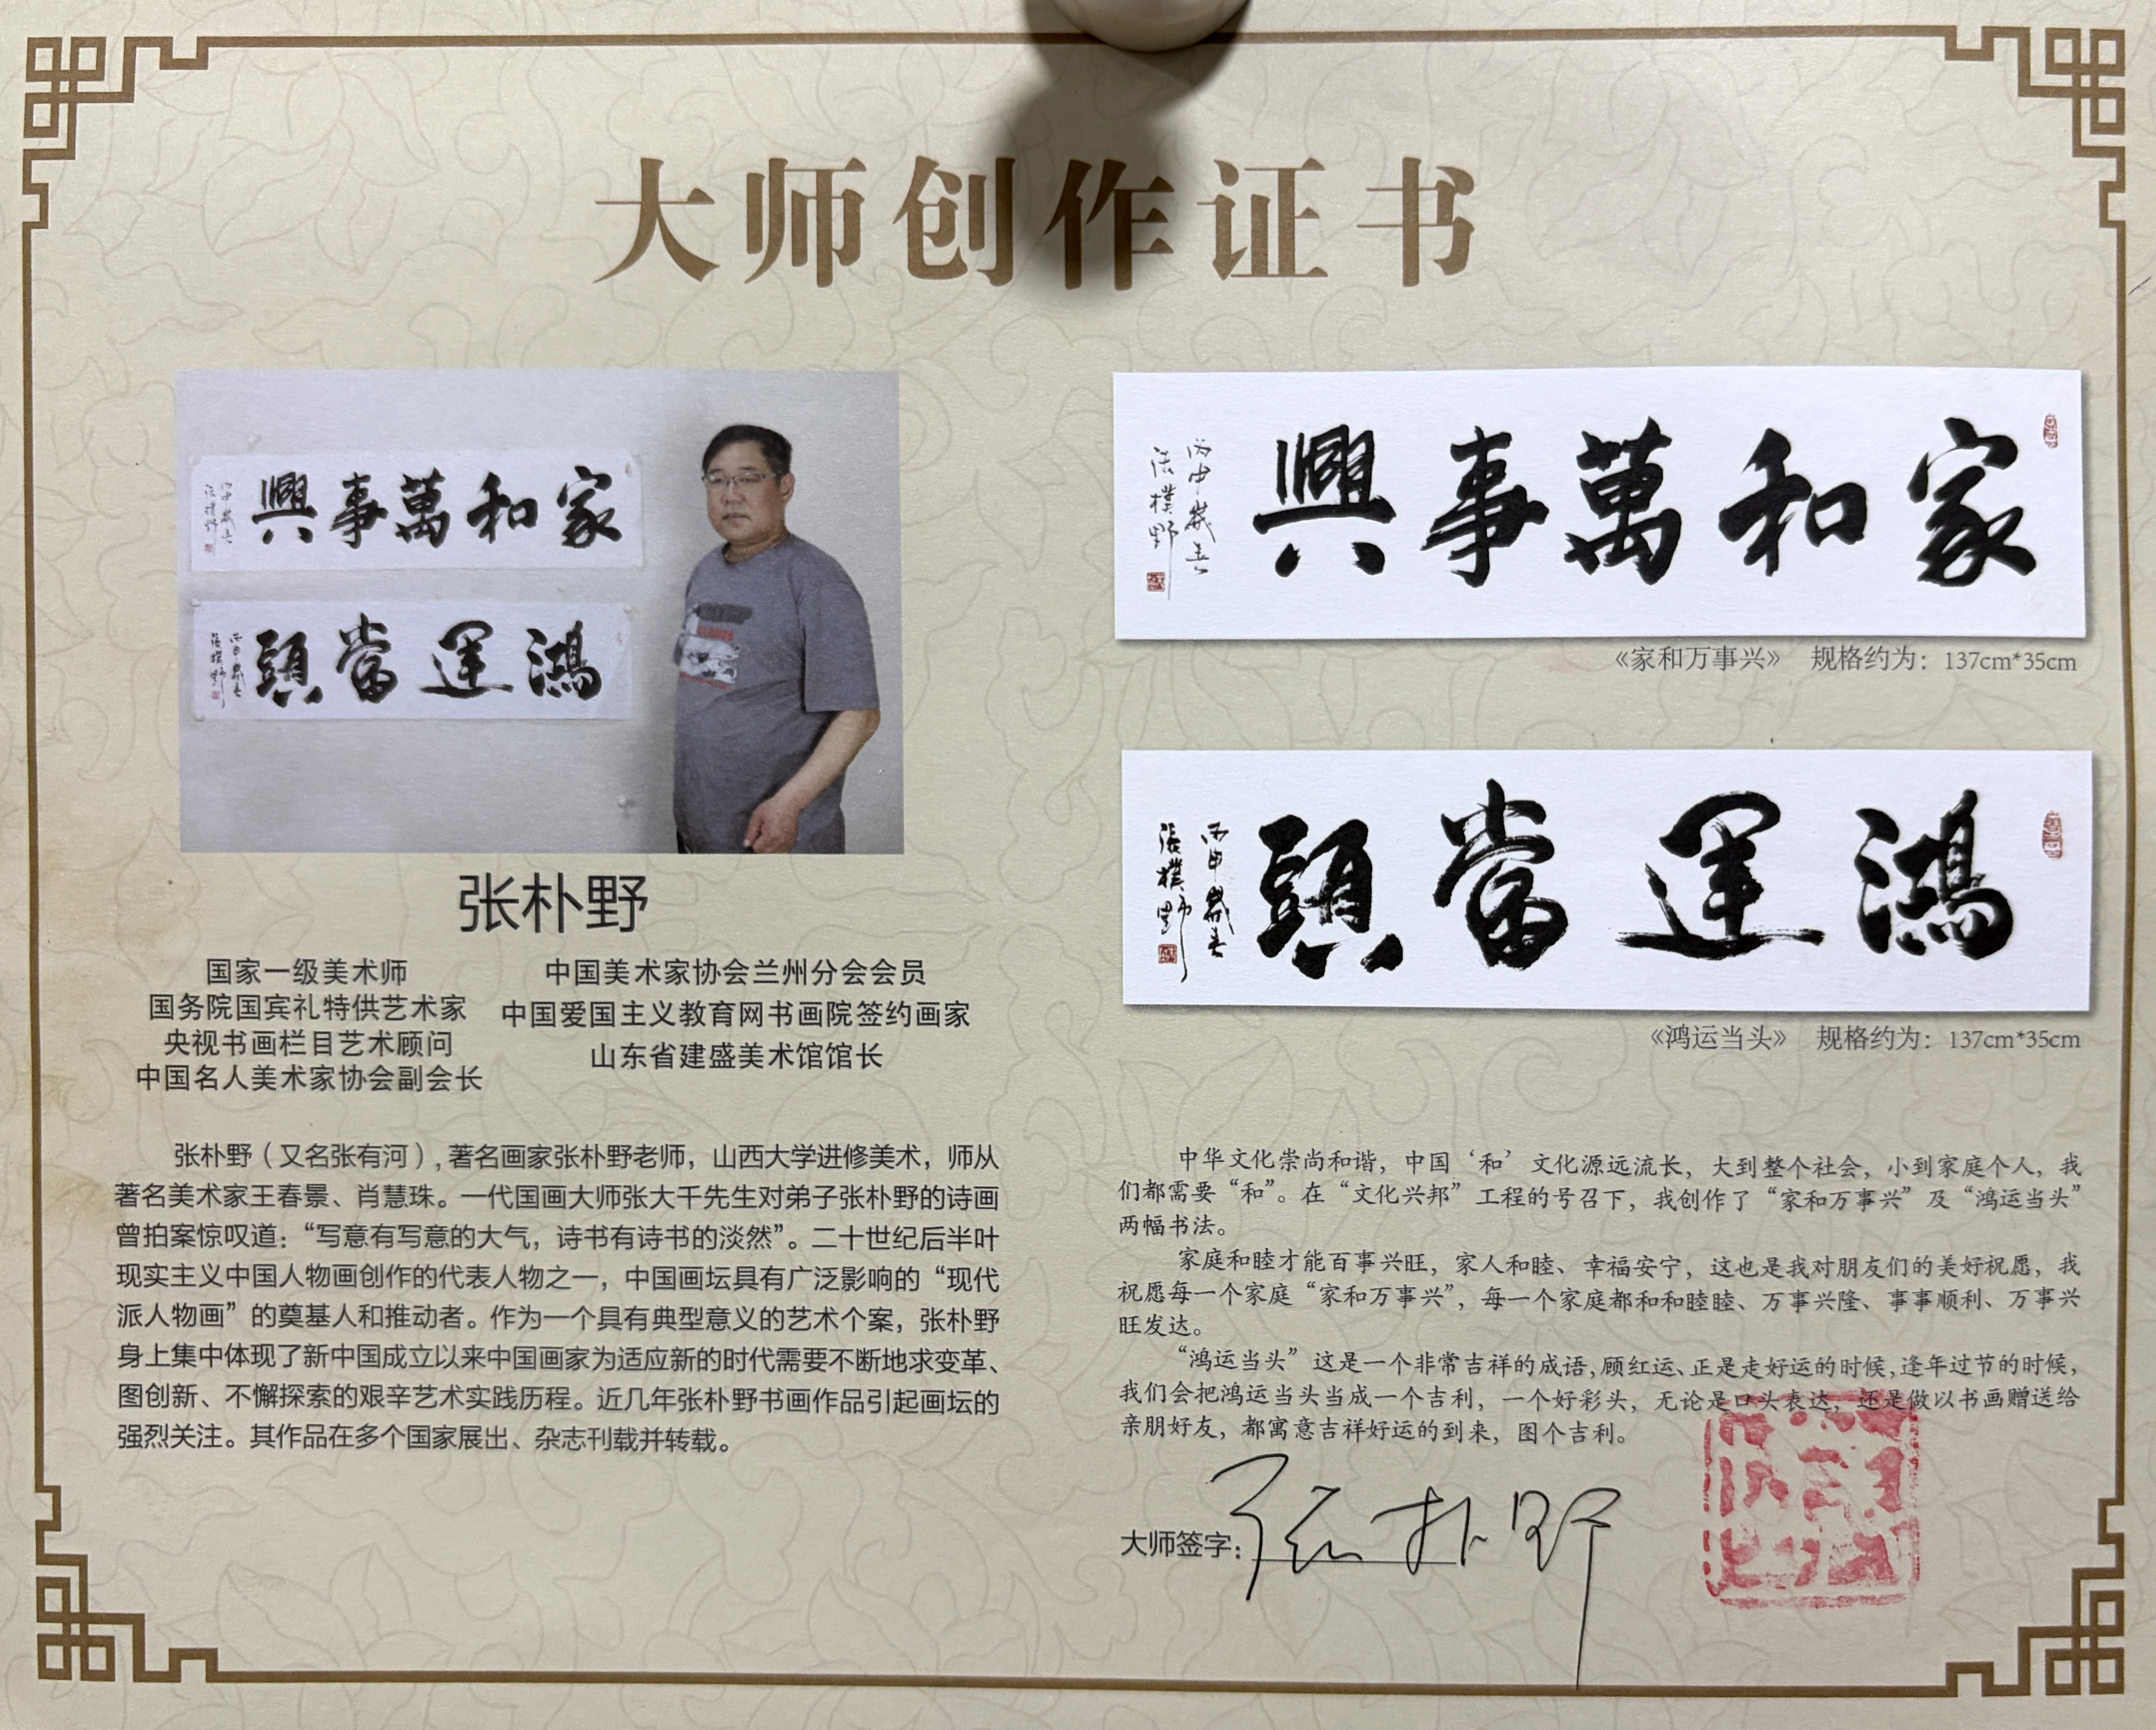 大师创作证书
興事萬和家
丙申歲春
張樸野
頭當運鴻
丙申歲春
張樸野
张朴野
国家一级美术师
国务院国宾礼特供艺术家
央视书画栏目艺术顾问
中国名人美术家协会副会长
中国美术家协会兰州分会会员
中国爱国主义教育网书画院签约画家
山东省建盛美术馆馆长
张朴野（又名张有河）,著名画家张朴野老师，山西大学进修美术，师从
著名美术家王春景、肖慧珠。一代国画大师张大千先生对弟子张朴野的诗画
曾拍案惊叹道：“写意有写意的大气，诗书有诗书的淡然”。二十世纪后半叶
现实主义中国人物画创作的代表人物之一，中国画坛具有广泛影响的“现代
派人物画”的奠基人和推动者。作为一个具有典型意义的艺术个案，张朴野
身上集中体现了新中国成立以来中国画家为适应新的时代需要不断地求变革、
图创新、不懈探索的艰辛艺术实践历程。近几年张朴野书画作品引起画坛的
强烈关注。其作品在多个国家展出、杂志刊载并转载。
興事萬和家
丙申歲春
張樸野
《家和万事兴》 规格约为：137cm*35cm
頭當運鴻
丙申歲春
張樸野
《鸿运当头》 规格约为：137cm*35cm
中华文化崇尚和谐，中国‘和’文化源远流长，大到整个社会，小到家庭个人，我
们都需要“和”。在“文化兴邦”工程的号召下，我创作了“家和万事兴”及“鸿运当头”
两幅书法。
家庭和睦才能百事兴旺，家人和睦、幸福安宁，这也是我对朋友们的美好祝愿，我
祝愿每一个家庭“家和万事兴”，每一个家庭都和和睦睦、万事兴隆、事事顺利、万事兴
旺发达。
“鸿运当头”这是一个非常吉祥的成语,顾红运、正是走好运的时候,逢年过节的时候，
我们会把鸿运当头当成一个吉利，一个好彩头，无论是口头表达，还是做以书画赠送给
亲朋好友，都寓意吉祥好运的到来，图个吉利。
大师签字：张朴野